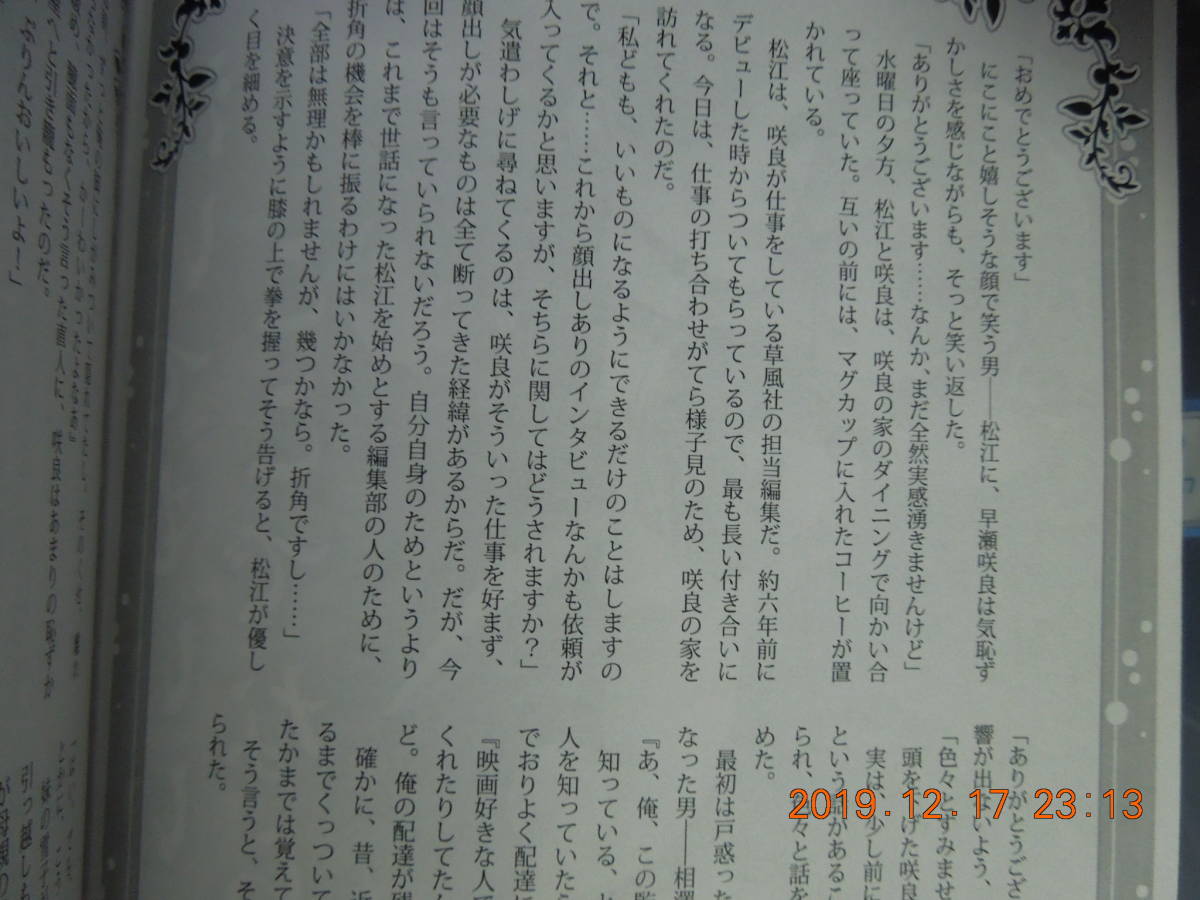 「おめでとうございます」
にこにこと嬉しそうな顔で笑う男――松江に、早瀬咲良は気恥ず
かしさを感じながらも、そっと笑い返した。
「ありがとうございます……なんか、まだ全然実感湧きませんけど」
水曜日の夕方、松江と咲良は、咲良の家のダイニングで向かい合
って座っていた。互いの前には、マグカップに入れたコーヒーが置
かれている。
松江は、咲良が仕事をしている草風社の担当編集だ。約六年前に
デビューした時からついてもらっているので、最も長い付き合いに
なる。今日は、仕事の打ち合わせがてら様子見のため、咲良の家を
訪れてくれたのだ。
「私どもも、いいものになるようにできるだけのことはしますの
で。それと……これから顔出しありのインタビューなんかも依頼が
入ってくるかと思いますが、そちらに関してはどうされますか？」
気遣わしげに尋ねてくるのは、咲良がそういった仕事を好まず、
顔出しが必要なものは全て断ってきた経緯があるからだ。だが、今
回はそうも言っていられないだろう。自分自身のためというより
は、これまで世話になった松江を始めとする編集部の人のために、
折角の機会を棒に振るわけにはいかなかった。
「全部は無理かもしれませんが、幾つかなら。折角ですし……」
決意を示すように膝の上で拳を握ってそう告げると、松江が優し
く目を細める。
「ありがとうござ
響が出ないよう、
「色々とすみませ
頭を下げた咲良
実は、少し前に
という話があるこ
られ、色々と話を
めた。
最初は戸惑った
なった男――相澤
『あ、俺、この監
知っている、と
人を知っていたら
でおりよく配達に
『映画好きな人で
くれたりしてたん
ど。俺の配達が残
確かに、昔、近
るまでくっついて
たかまでは覚えて
そう言うと、そ
られた。
もったのだ。
そう言った直人に、咲良はあまりの恥ずか
ぷりんおいしいよ！」
引っ越した
2019.12.17 23:13